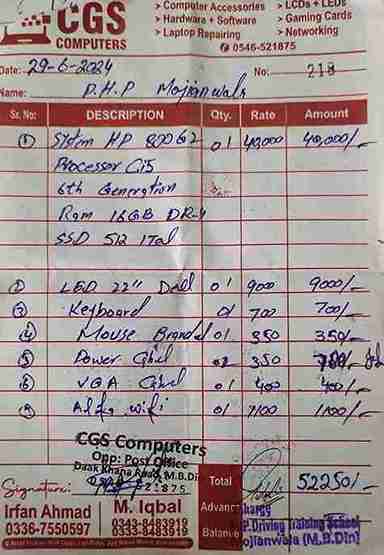 CGS
COMPUTERS
> Computer Accessories > LCDs + LEDs
> Hardware + Software > Gaming Cards
> Laptop Repairing > Networking
0546-521875
Date: 29-6-2024 No: 218
Name: D.H.P Mojianwala
Sr. No: DESCRIPTION Qty. Rate Amount
① System HP 800G2 01 40,000 40,000/-
Processor Ci5
6th Generation
Ram 16GB DR-4
SSD 512
② LED 22" Dell 01 9000 9000/-
③ Keyboard 01 700 700/-
④ Mouse Branded 01 350 350/-
⑤ Power Cabel 02 350
⑥ VGA Cabel 01 400 400/-
wifi 01 1100 1100/-
CGS Computers
Opp: Post Office
Daak Khana Road, M.B.Din
Signature: Total 52250/-
Irfan Ahmad M. Iqbal Advance
0336-7550597 0343-8483919 Balance
Driving Training School
Mojianwala (M.B.Din)